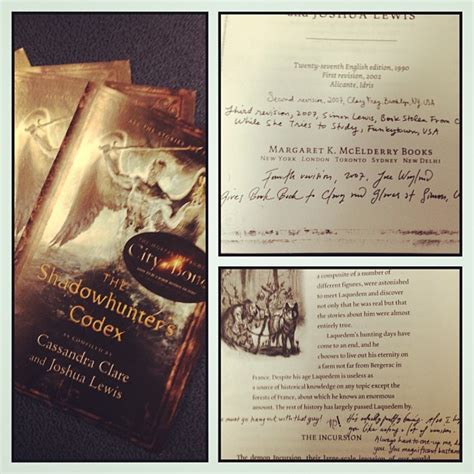 ALL THE STORIES
City of Bones
THE
Shadowhunter's
Codex
AS COMPILED BY
Cassandra Clare
and Joshua Lewis
and JOSHUA LEWIS
Twenty-seventh English edition, 1990
First revision, 2002
Alicante, Idris
Second revision, 2007, Clary Fray, Brooklyn, NY, USA
Third revision, 2007, Simon Lewis, Book Stolen From C
While She Tries to Study, Funkytown, USA
MARGARET K. McELDERRY BOOKS
NEW YORK LONDON TORONTO SYDNEY NEW DELHI
Fourth revision, 2007, Jace Wayland
Gives Book Back to Clary and Glares at Simon, U
a composite of a number of
different figures, were astonished
to meet Laquedem and discover
not only that he was real but that
the stories about him were almost
entirely true.
Laquedem's hunting days have
come to an end, and he
chooses to live out his eternity on
a farm not far from Bergerac in
France. Despite his age Laquedem is useless as
a source of historical knowledge on any topic except the
forests of France, about which he knows an enormous
amount. The rest of history has largely passed Laquedem by.
must go hang out with that guy!
He's awfully boring. Also I h
you like eating a lot of venison.
THE INCURSION
Always have to one-up me, do
you. You magnificent bastard
The demon Incursion, their large-scale invasion of our world